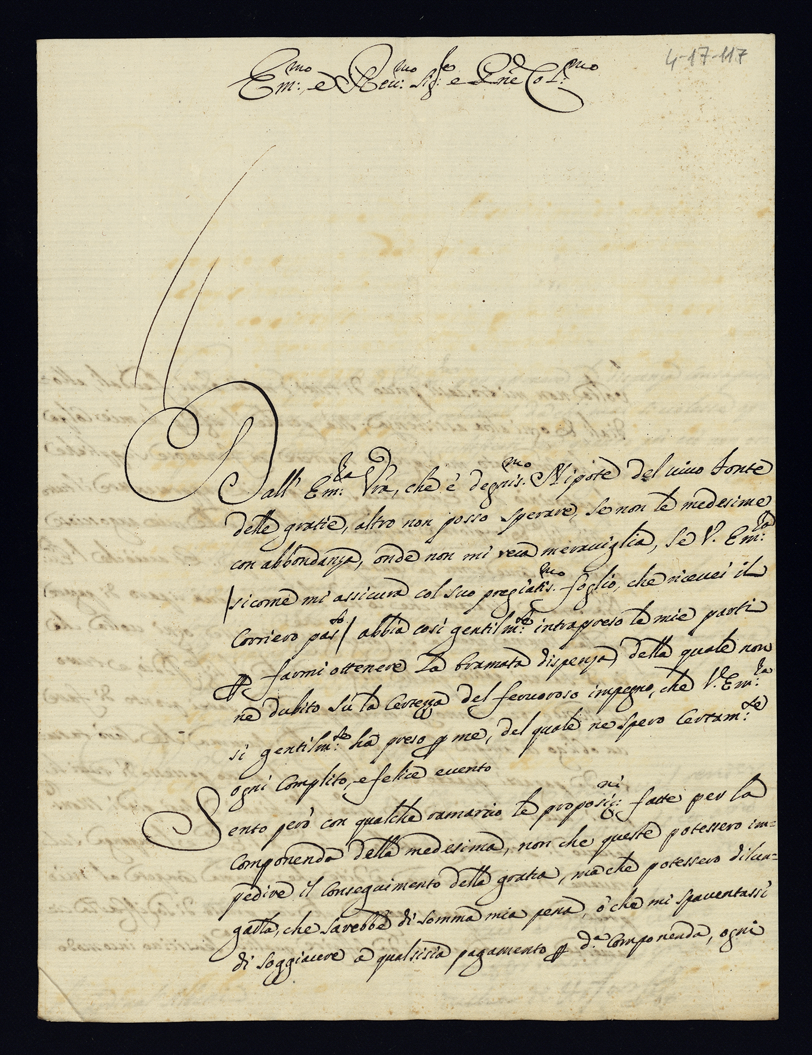 4-17-117
Em:mo e Rev:mo Sig:re e Prne Col:mo
Dall' Em:za Vrã, che è degnis:mo Nipote del vivo fonte
delle gratie, altro non posso sperare, se non le medesime
con abbondanza, onde non mi reca meraviglia, se V. Em:za
/sicome mi assicura col suo pregiatis:mo foglio, che ricevei il
Corriero pas:to/ abbia così gentilm:te intrapreso le mie parti
per farmi ottenere la bramata dispenza della quale non
ne dubito sù la Certezza del fervoroso impegno, che V. Em:za
si gentilm:te ha preso per me, del quale ne spero Certam:te
ogni Complito, e felice evento
Sento però con qualche ramarico le proposi:ni fatte per la
Componenda della medesima, non che queste potessero im=
pedire il Conseguimento della gratia, ma che potessero dilun=
garla, che sarebbe di somma mia pena, ò che mi spaventassi
di soggiacere a qualsisia pagamento per d.a Componenda, ogni